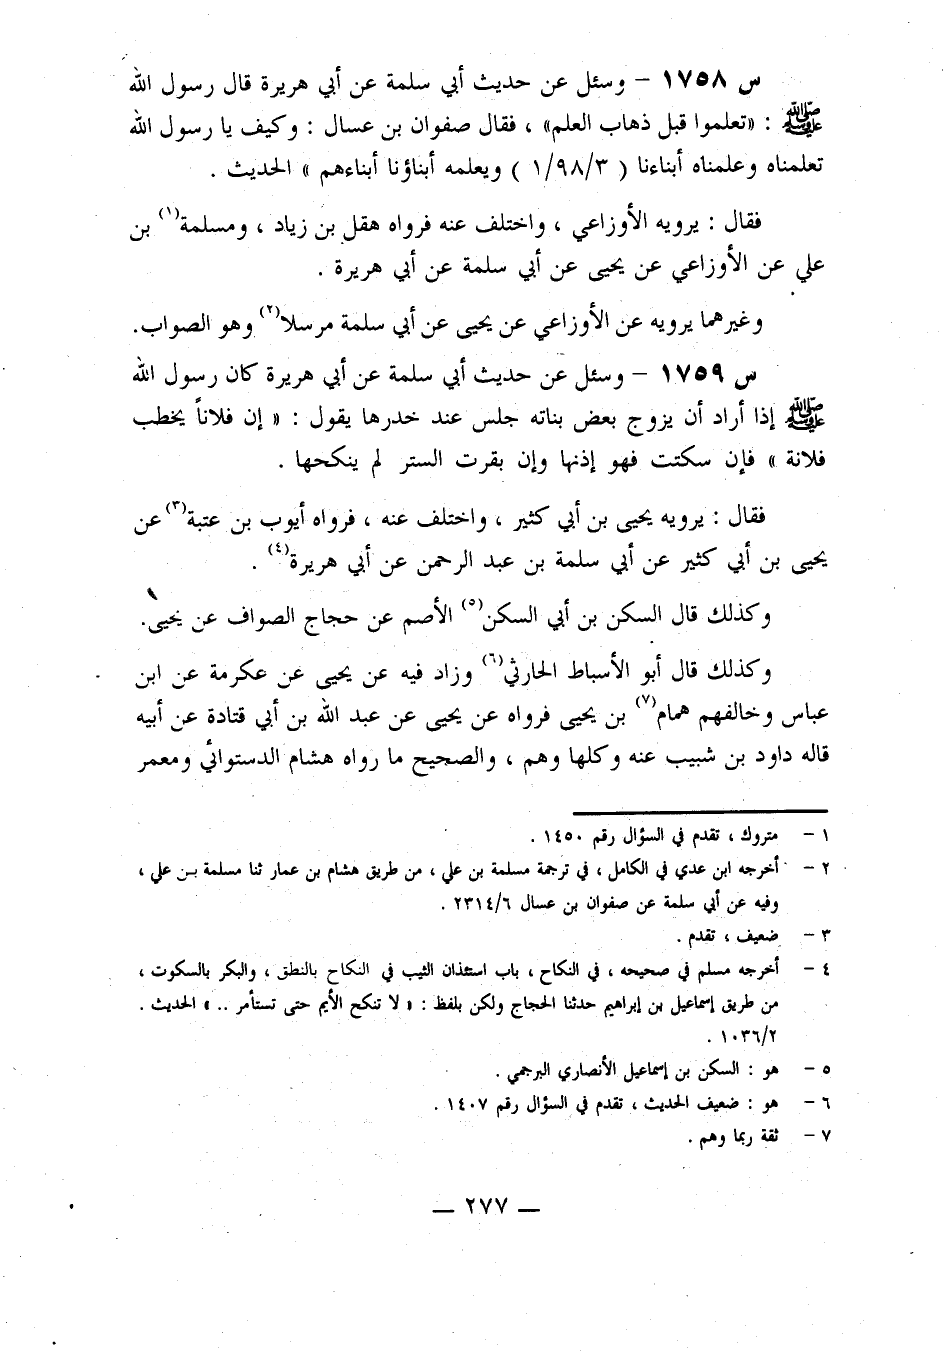 س ١٧٥٨ – وسئل عن حديث أبي سلمة عن أبي هريرة قال رسول الله
ﷺ : «تعلموا قبل ذهاب العلم» ، فقال صفوان بن عسال : وكيف يا رسول الله
تعلمناه وعلمناه أبناءنا ( ١/٩٨/٣ ) ويعلمه أبناؤنا أبناءهم » الحديث .
فقال : يرويه الأوزاعي ، واختلف عنه فرواه هقل بن زياد ، ومسلمة(١) بن
علي عن الأوزاعي عن يحيى عن أبي سلمة عن أبي هريرة .
وغيرهما يرويه عن الأوزاعي عن يحيى عن أبي سلمة مرسلا(٢) وهو الصواب.
س ١٧٥٩ – وسئل عن حديث أبي سلمة عن أبي هريرة كان رسول الله
ﷺ إذا أراد أن يزوج بعض بناته جلس عند خدرها يقول : « إن فلاناً يخطب
فلانة » فإن سكتت فهو إذنها وإن بقرت الستر لم ينكحها .
فقال : يرويه يحيى بن أبي كثير ، واختلف عنه ، فرواه أيوب بن عتبة(٣) عن
يحيى بن أبي كثير عن أبي سلمة بن عبد الرحمن عن أبي هريرة(٤) .
وكذلك قال السكن بن أبي السكن(٥) الأصم عن حجاج الصواف عن يحيى.
وكذلك قال أبو الأسباط الحارثي(٦) وزاد فيه عن يحيى عن عكرمة عن ابن
عباس وخالفهم همام(٧) بن يحيى فرواه عن يحيى عن عبد الله بن أبي قتادة عن أبيه
قاله داود بن شبيب عنه وكلها وهم ، والصحيح ما رواه هشام الدستوائي ومعمر
١ – متروك ، تقدم في السؤال رقم ١٤٥٠ .
٢ – أخرجه ابن عدي في الكامل ، في ترجمة مسلمة بن علي ، من طريق هشام بن عمار ثنا مسلمة بن علي ،
وفيه عن أبي سلمة عن صفوان بن عسال ٢٣١٤/٦ .
٣ – ضعيف ، تقدم .
٤ – أخرجه مسلم في صحيحه ، في النكاح ، باب استئذان الثيب في النكاح بالنطق ، والبكر بالسكوت ،
من طريق إسماعيل بن إبراهيم حدثنا الحجاج ولكن بلفظ : « لا تنكح الأيم حتى تستأمر .. » الحديث .
١٠٣٦/٢ .
٥ – هو : السكن بن إسماعيل الأنصاري البرجمي .
٦ – هو : ضعيف الحديث ، تقدم في السؤال رقم ١٤٠٧ .
٧ – ثقة ربما وهم .
— ٢٧٧ —